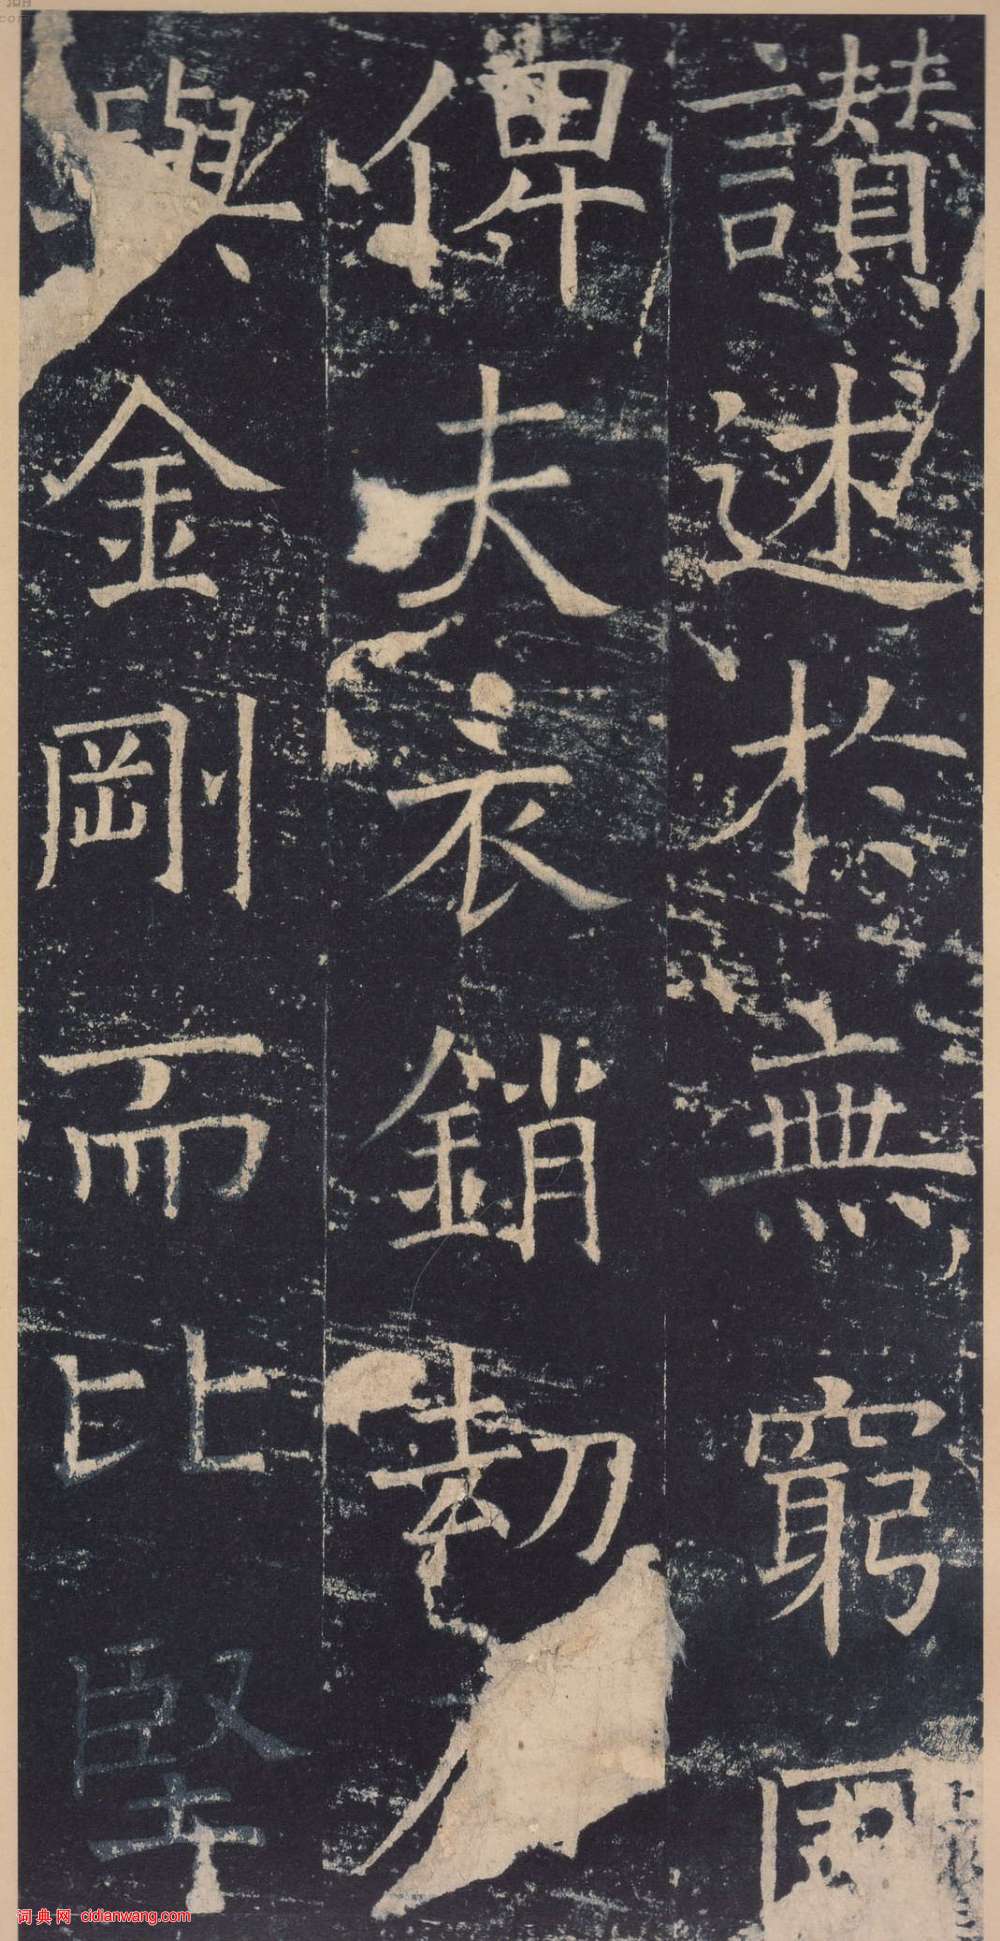 讃述於無窮
俾夫衣銷劫
與金剛而比堅
词典网 cidianwang.com